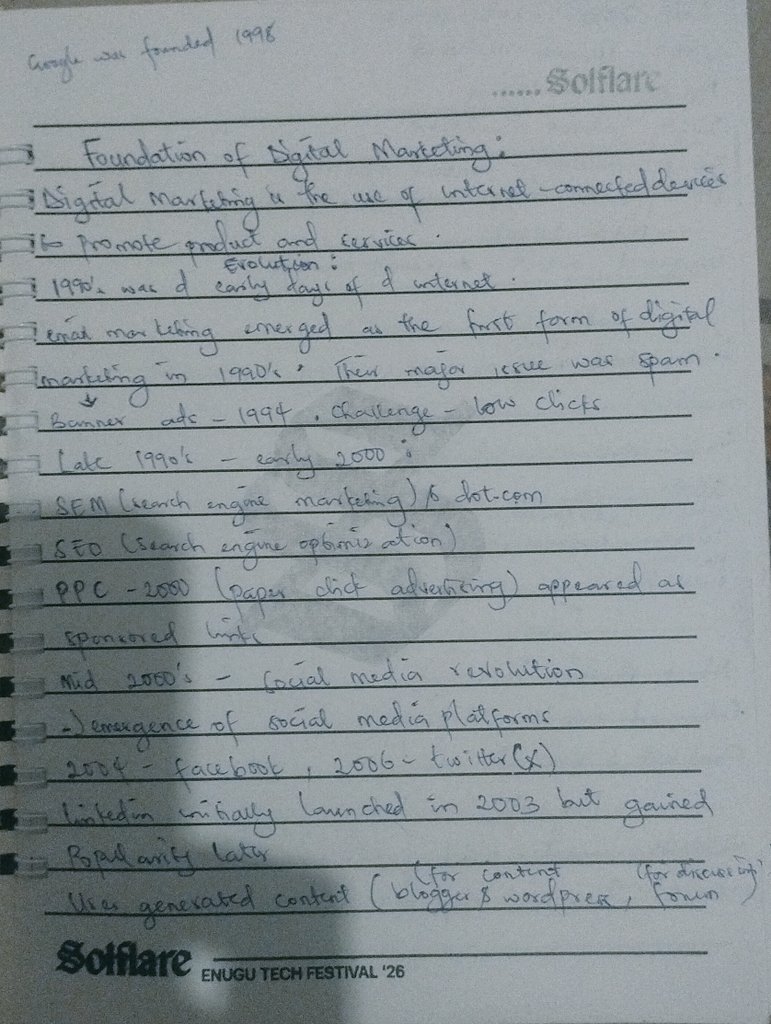 Google was founded 1998
...... Solflare
Foundation of Digital Marketing:
Digital marketing is the use of internet-connected devices
to promote product and services.
Evolution:
1990's was d early days of d internet.
email marketing emerged as the first form of digital
marketing in 1990's. Their major issue was spam.
Banner ads - 1994. Challenge - low clicks
Late 1990's - early 2000:
SEM (search engine marketing) & dot.com
SEO (search engine optimization)
PPC - 2000 (paper click advertising) appeared as
sponsored links
Mid 2000's - social media revolution
-) emergence of social media platforms
2004 - facebook, 2006 - twitter (x)
linkedin initially launched in 2003 but gained
Popularity later
(for content (for discussing)
User generated content (blogger & wordpress, forum
Solflare ENUGU TECH FESTIVAL '26